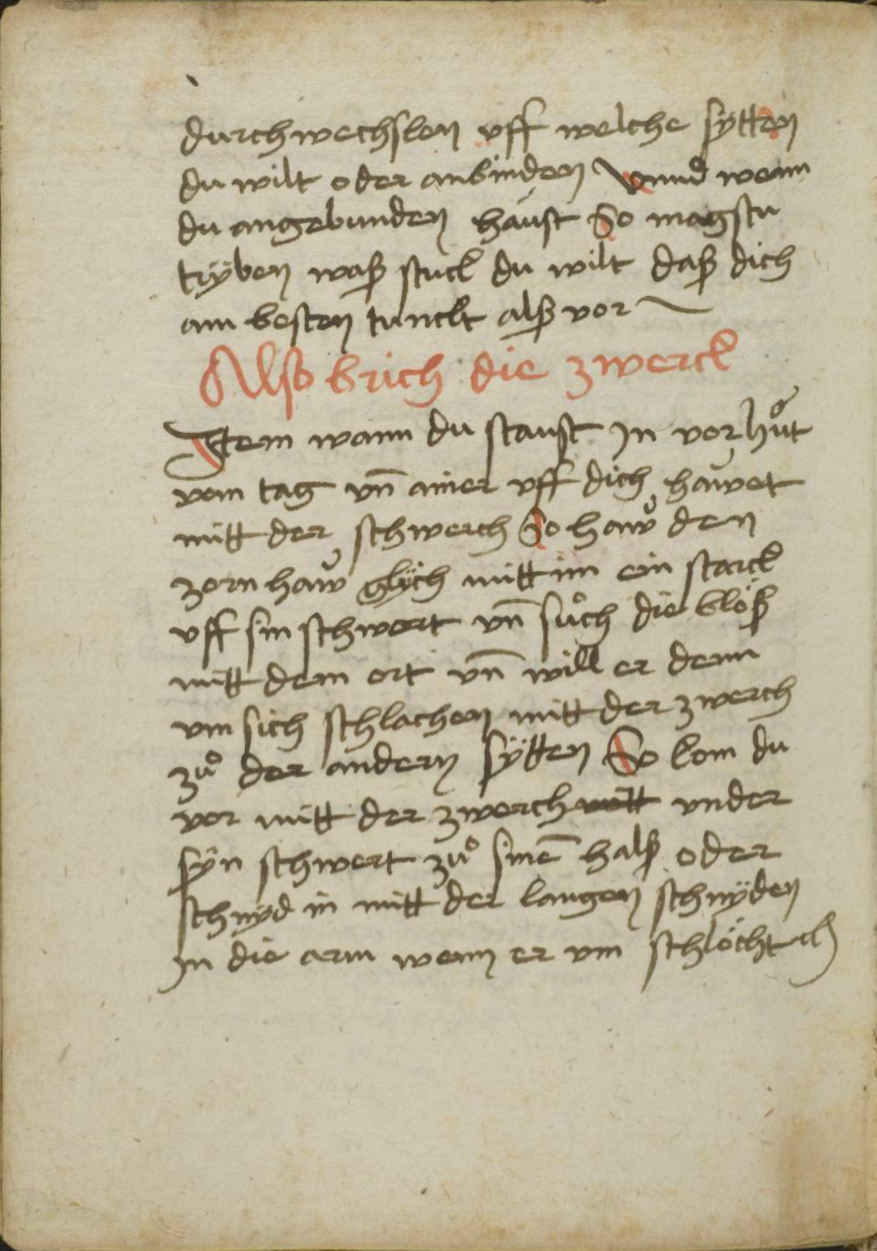 durch wechslen vff welche sÿtten
du wilt oder anbinden Vnnd wenn
du angebunden háust So magstu
trÿben waß stuck du wilt daß dich
am besten tunckt alß vor
Also brich die zwerck
Item wann du staust In vor hůt
vom tag vn̄ ainer vff dich hawet
mitt der schwerch So haw den
zorn haw glÿch mitt im ein starck
vff sin schwert vn̄ sůch die blöß
mitt dem ort vn̄ will er denn
vm sich schlachen mitt der zwerch
zů der andern sÿtten So kom du
vor mitt der zwerch vnder
sÿn schwert zů sinē halß oder
schnyd in mitt der langen schnÿden
In die arm wenn er vm schlöcht